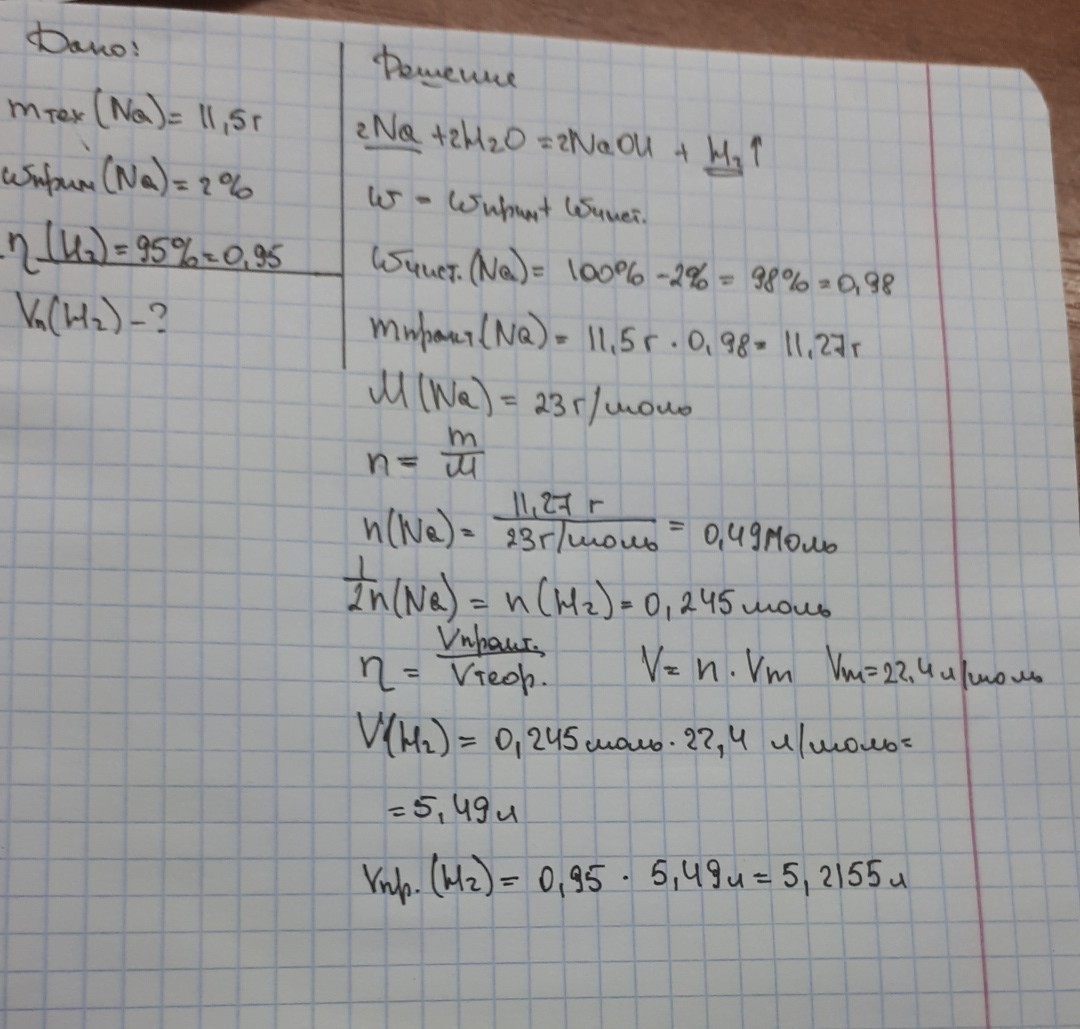 Дано:
mтех(Na)= 11,5г
ωприм(Na)=2%
η(H2)=95%=0,95
Vп(H2)-?
Решение
2Na +2H2O =2NaOH + H2↑
ω = ωприм+ ωчист.
ωчист.(Na)= 100% -2% = 98% =0,98
mпракт(Na)= 11,5г · 0,98= 11,27г
M(Na)= 23г/моль
n= m/M
n(Na)= 11,27 г/23г/моль = 0,49моль
1/2n(Na)= n(H2)=0,245моль
η = Vпракт./Vтеор. V= n · Vm Vm=22,4л/моль
V(H2)= 0,245моль·22,4 л/моль=
=5,49л
Vпр.(H2)= 0,95 · 5,49л=5,2155л